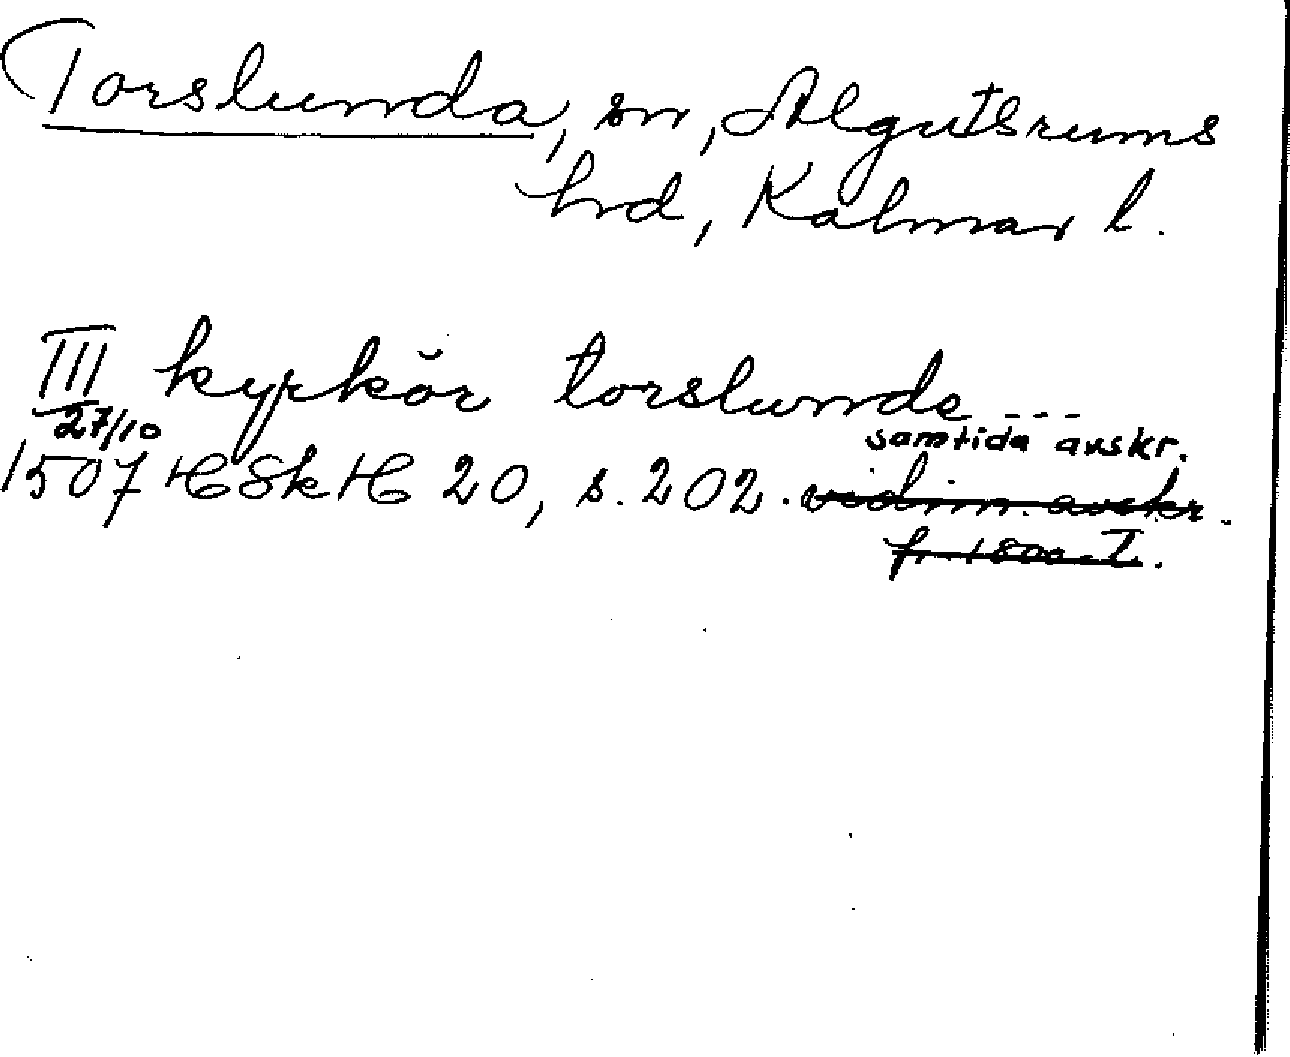 Torslunda, sn, Algutsrums
hrd, Kalmar l.
III kyrkŏr torslunde...
27/10 samtida avskr.
1507 HSkH 20, s. 202. vidim. avskr.
fr. 1800-T.